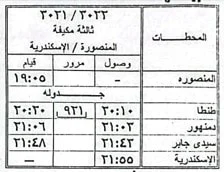 ٣٠٢١ / ٣٠٢٢
ثالثة مكيفة
المنصورة / الإسكندرية
المحطات
وصول مرور قيام
المنصوره - ١٩:٠٥
جدوله
طنطا ٢٠:١٠ ٩٢١ ٢٠:٢٠
دمنهور ٢١:٠٣ ٢١:٠٦
سيدى جابر ٢١:٤٣ ٢١:٤٨
الإسكندرية ٢١:٥٥ —